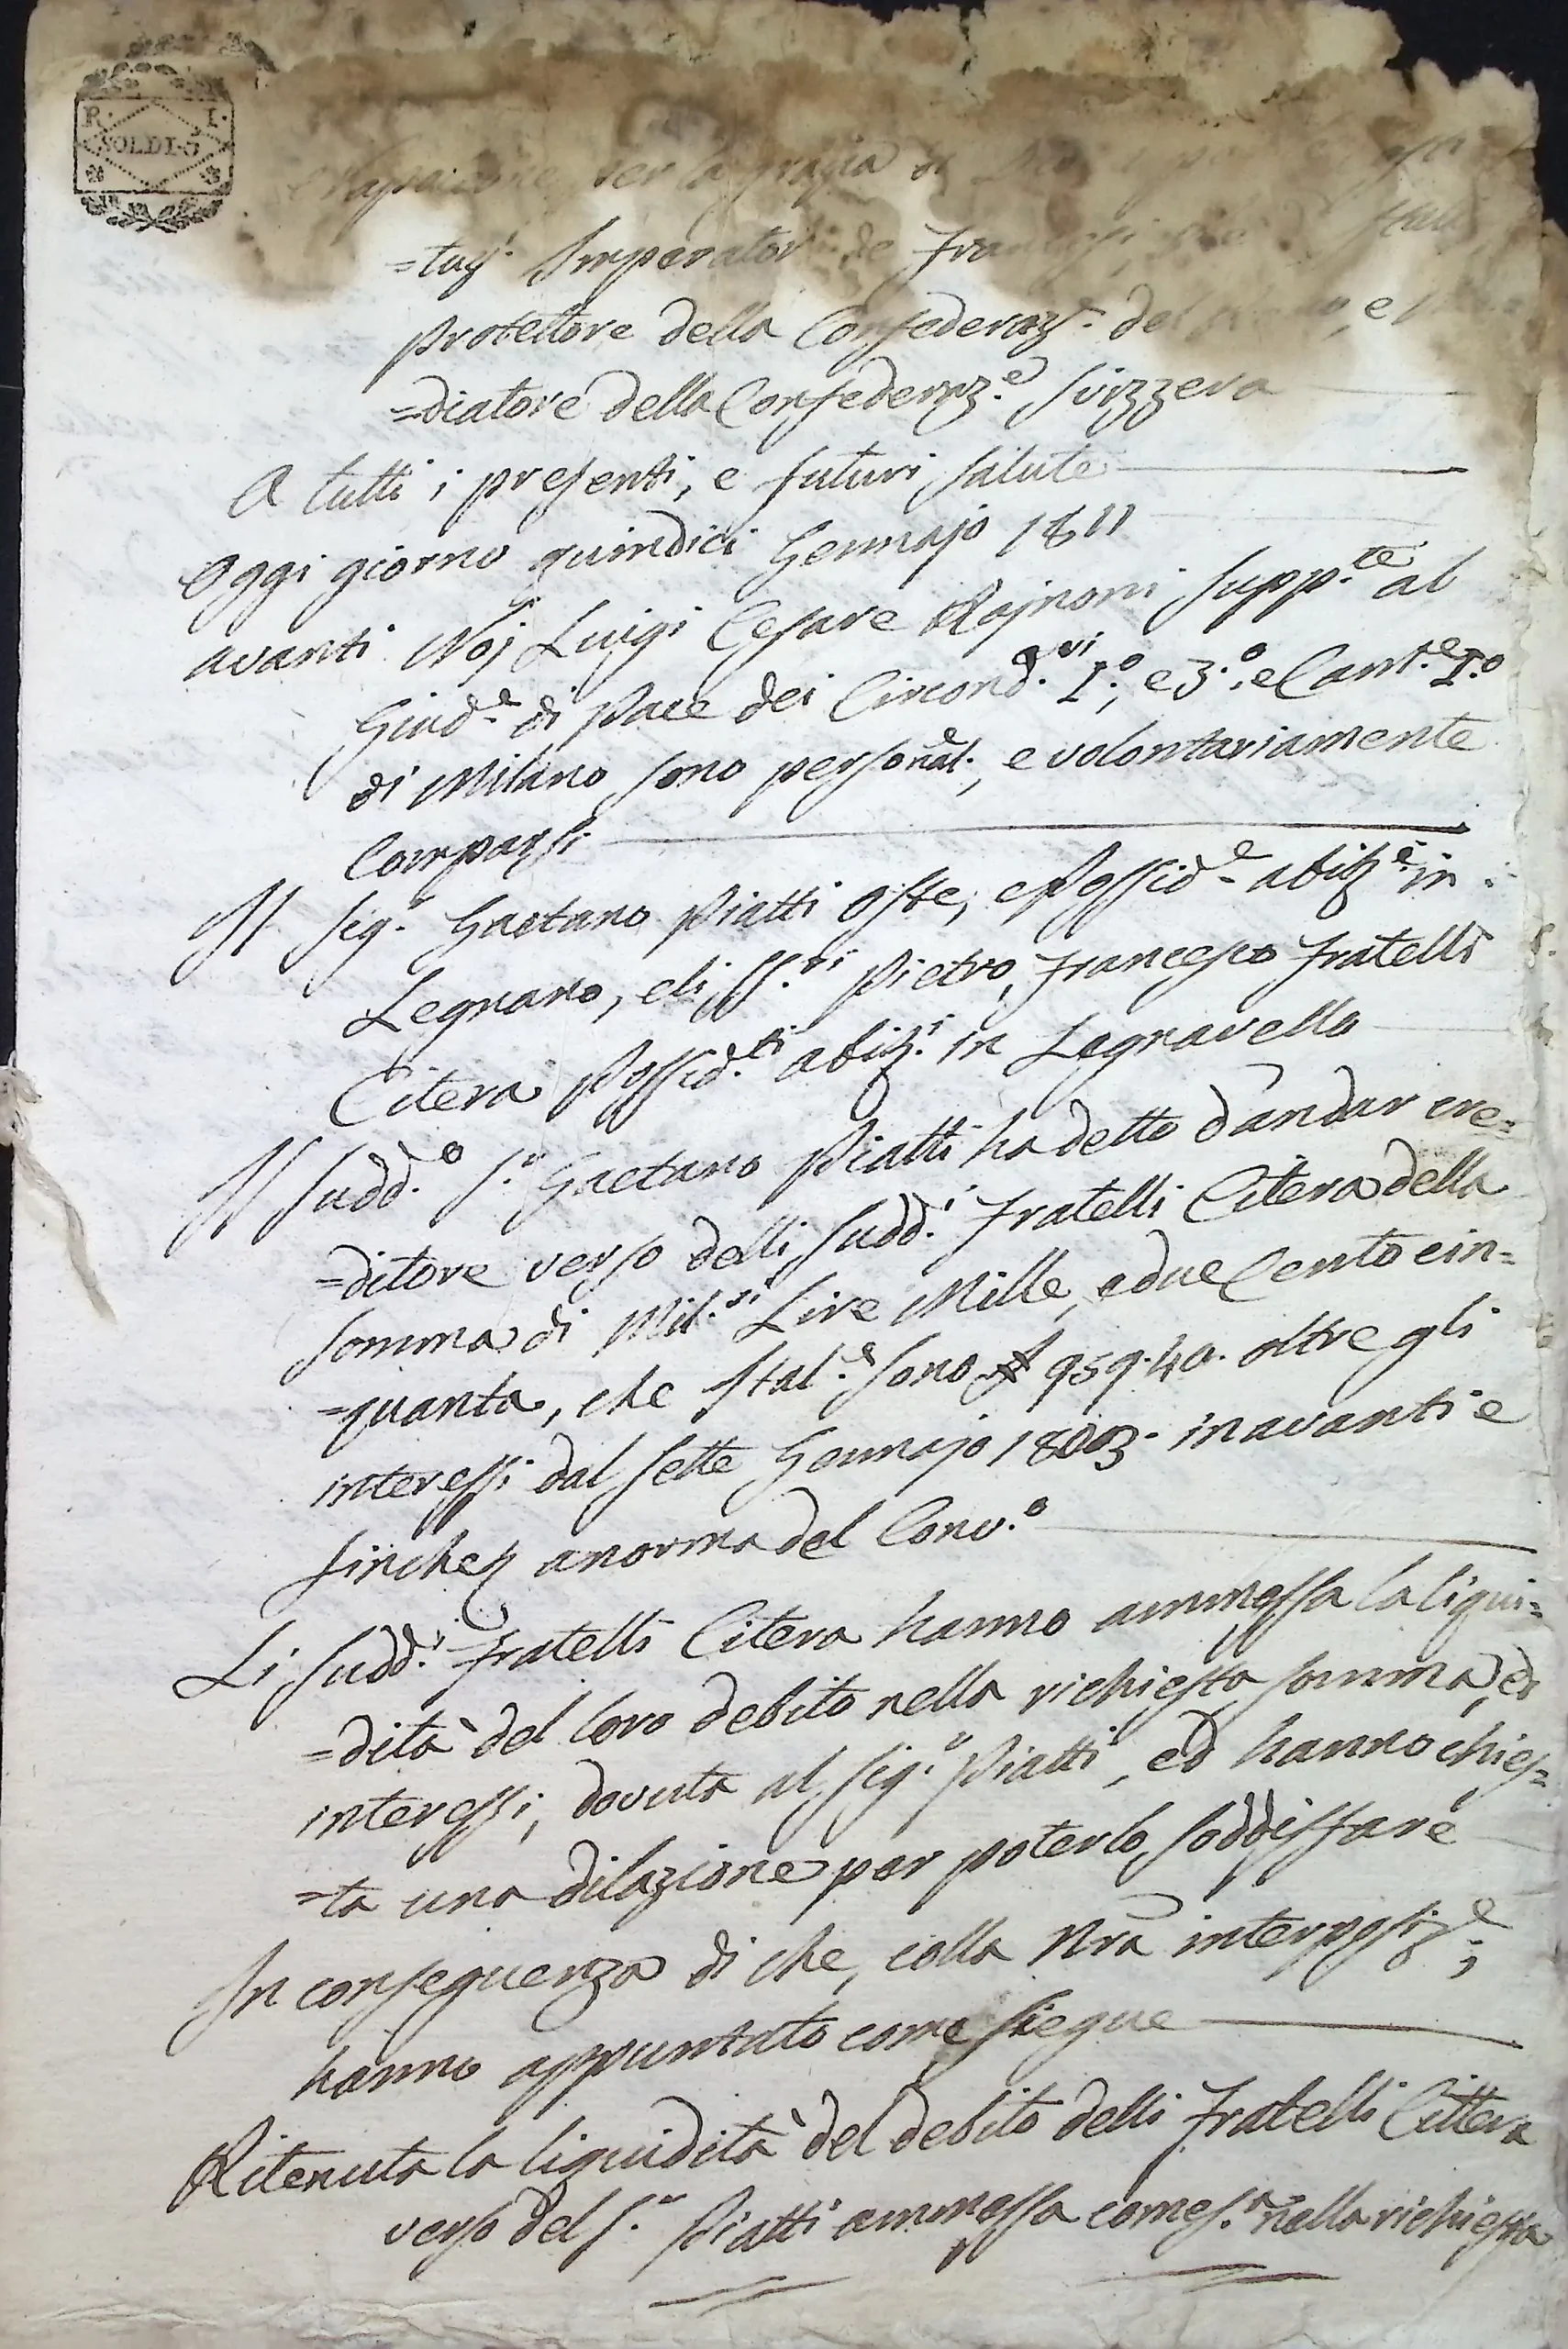 R. I.
SOLDI 5
Napoleone per la grazia di
=tuz.i Imperatore de Francesi,
protettore della Confederaz.e del e
=diatore della Confederaz.e Svizzera
A tutti i presenti, e futuri salute
Oggi giorno quindici Gennajo 1811
avanti Noj Luigi Cesare Rajnoni supp.te al
Giud.e di Pace dei Circond.ri I.o, e 3.o, e Cant.e I.o
di Milano sono personal.e, e volontariamente
Comparsi
Il sig.r Gaetano Piatti Oste, e Possid.e abit.e in
Legnano, e li SS.ri Pietro, Francesco fratelli
Citera Possid.ti abit.i in Legnarello
Il sudd.o S.r Gaetano Piatti ha detto d'andar cre=
=ditore verso delli sudd.i Fratelli Citera della
somma di Mil.si Lire Mille, e due Cento cin=
=quanta, che Ital.e sono £ 959.40. oltre gli
interessi dal sette Gennajo 1803. in avanti e
finchè a norma del Conv.o
Li sudd.i Fratelli Citera hanno ammessa la liqui=
=dità del loro debito nella richiesta somma, ed
interessi, dovuta al sig.r Piatti, ed hanno chies=
=ta una dilazione per poterlo soddisfare
In conseguenza di che, colla Nra interposiz.e,
hanno appuntato come siegue
Ritenuta la liquidità del debito delli Fratelli Cittera
verso del S.r Piatti ammessa come s.a nella richiesta